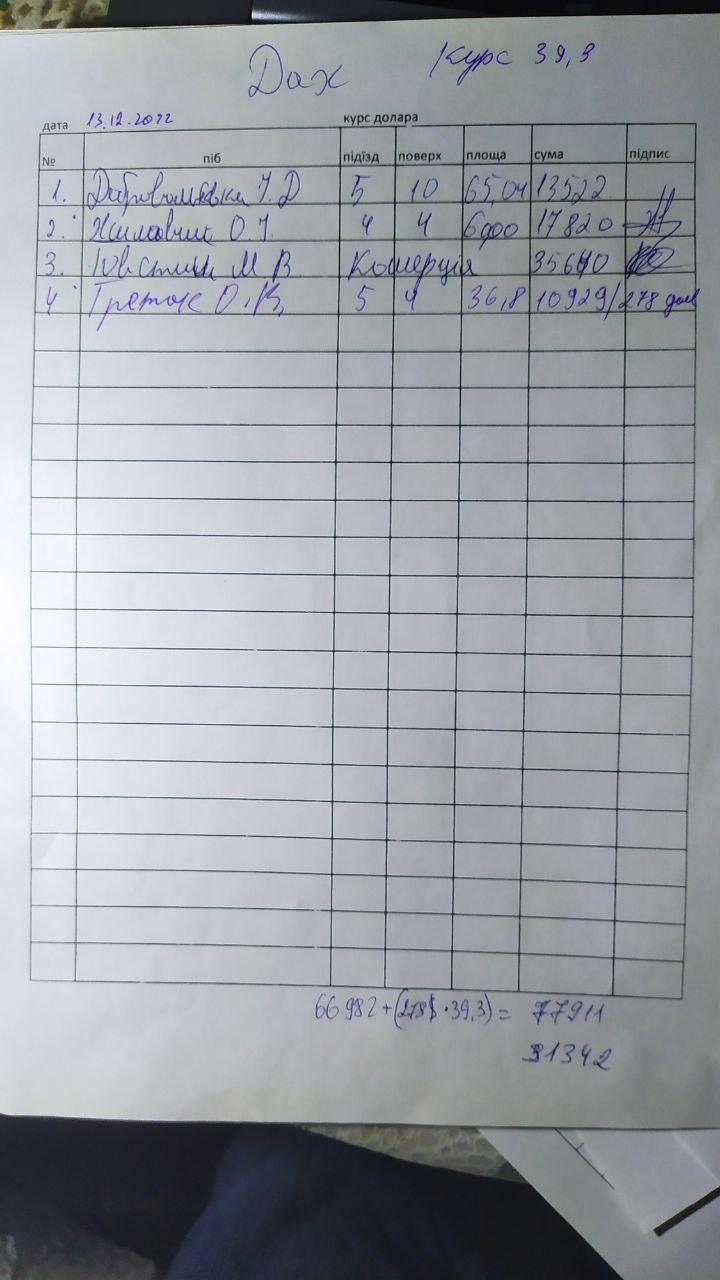 Дах Курс 39,3
дата 13.12.2022 курс долара
№ піб підїзд поверх площа сума підпис
1. Добровольська І. Д 5 10 65,04 13522
2. О. І. 4 4 17820
3. М В Комерція 35640
4 О. В. 5 4 36,8 10929/278 дол
66982+(278$·39,3)= 77911
31342